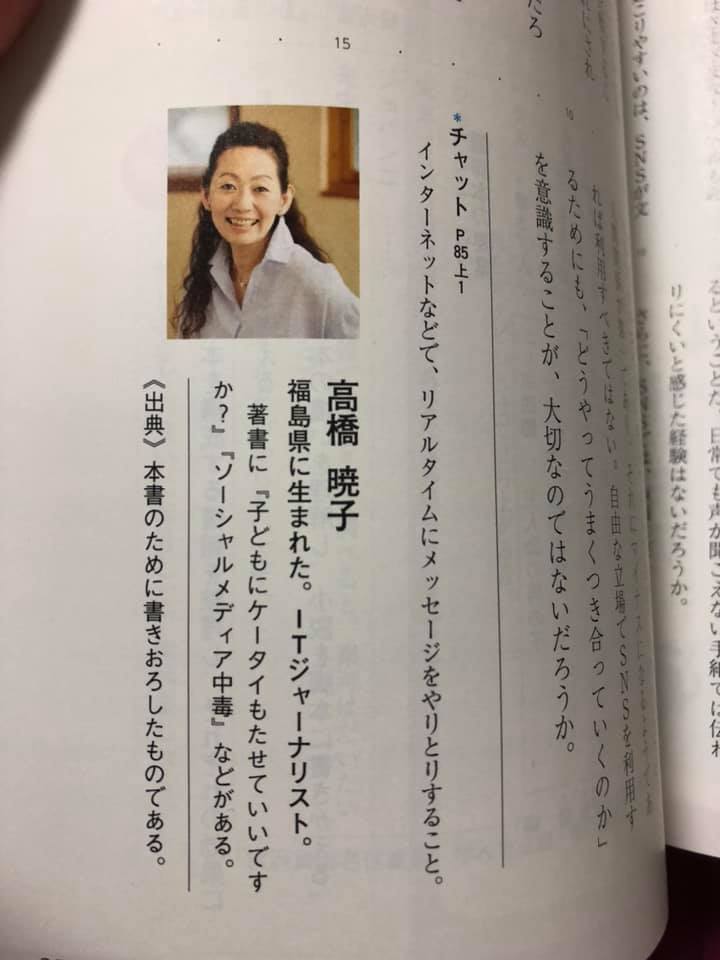 こりやすいのは、SNSが文
るということだ。日常でも声が聞こえない手紙では伝わ
りにくいと感じた経験はないだろうか。
だろ
15
10
れば利用すべきではない。自由な立場でSNSを利用す
るためにも、「どうやってうまくつき合っていくのか」
を意識することが、大切なのではないだろうか。
*チャット P85上1
インターネットなどで、リアルタイムにメッセージをやりとりすること。
高橋 暁子
福島県に生まれた。ITジャーナリスト。
著書に『子どもにケータイもたせていいです
か?』『ソーシャルメディア中毒』などがある。
《出典》本書のために書きおろしたものである。